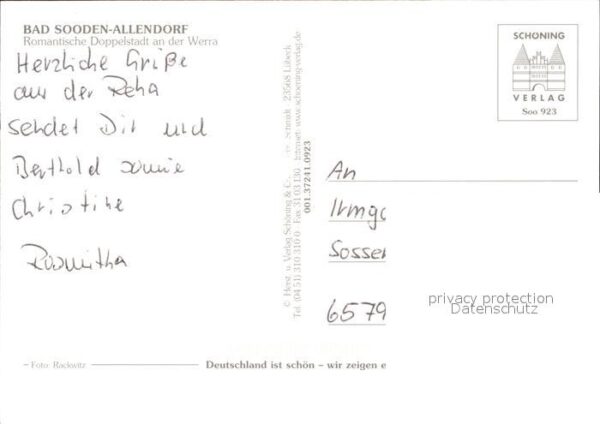 BAD SOODEN-ALLENDORF
Romantische Doppelstadt an der Werra
Herzliche Grüße
aus der Reha
sendet Dir und
Berthold sowie
Christine
Rosmitha
Foto: Rackwitz
© Herst. u. Verlag Schöning & Co. Schmidt 23568 Lübeck
Tel. (04 51) 310 310 0 · Fax 31 03 130 · Internet: www.schoening-verlag.de
001.37241.0923
SCHÖNING
VERLAG
Soo 923
An
Irmga
Sossen
6579
privacy protection
Datenschutz
Deutschland ist schön – wir zeigen e